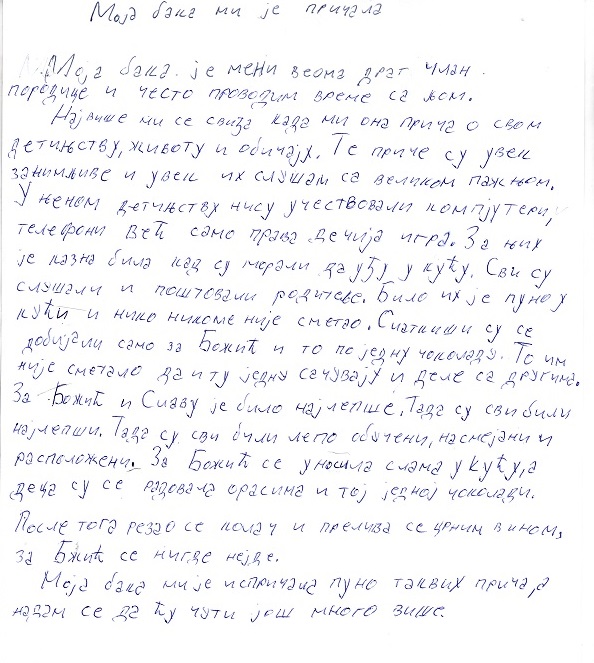 Моја бака ми је причала
Моја бака је мени веома драг члан
породице и често проводим време са њом.
Највише ми се свиђа када ми она прича о свом
детињству, животу и обичају. Те приче су увек
занимљиве и увек их слушам са великом пажњом.
У њеном детињству нису учествовали компјутери,
телефони већ само права дечија игра. За њих
је казна била кад су морали да уђу у кућу. Сви су
слушали и поштовали родитеље. Било их је пуно у
кући и нико никоме није сметао. Слаткиши су се
добијали само за Божић и то по једну чоколаду. То им
није сметало да и ту једну сачувају и деле са другима.
За Божић и Славу је било најлепше. Тада су сви били
најлепши. Тада су сви били лепо обучени, насмејани и
расположени. За Божић се уносила слама у кућу, а
деца су се радовала орасина и тој једној чоколади.
После тога резао се колач и прелива се црним вином,
за Бжић се нигде нејде.
Моја бака ми је испричала пуно таквих прича, а
надам се да ћу чути још много више.